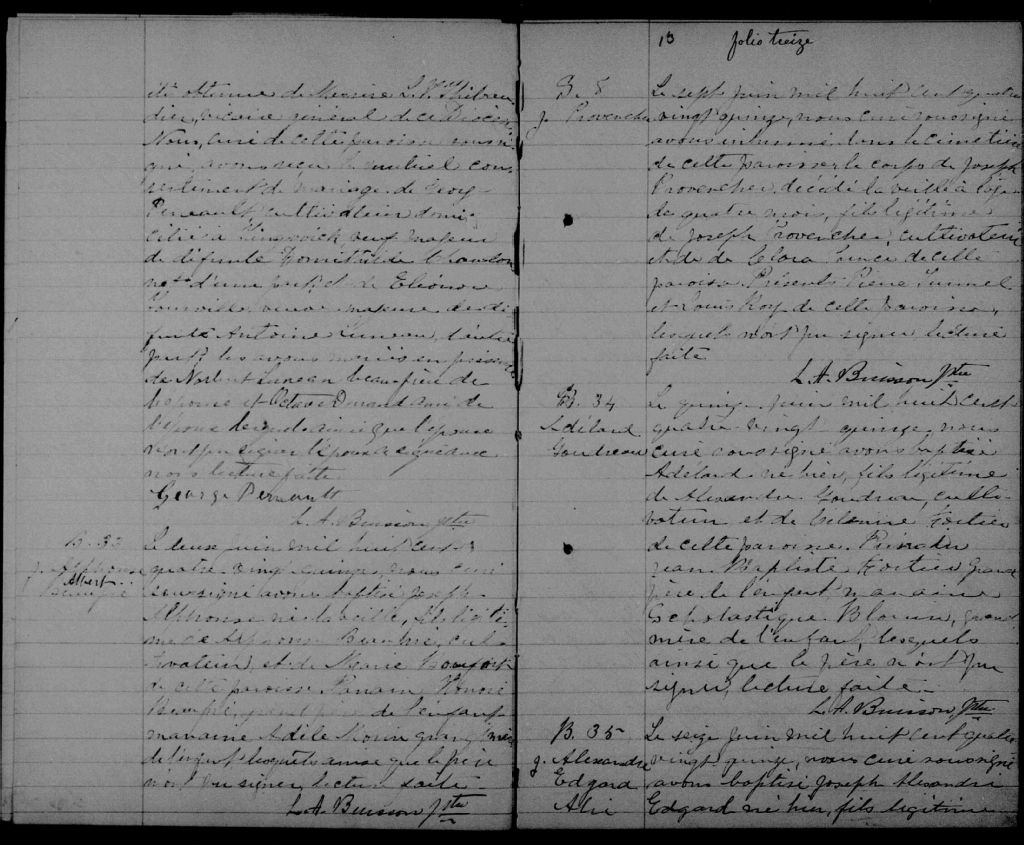 été obtenue de Messire
dier, vicaire général de ce Diocèse
Nous, curé de cette paroisse soussi
gné avons reçu le mutuel con
sentement de mariage de Georg
Perreault, cultivateur domi
cilié à veuf majeur
de défunte
d'une part, et de Eléonore
veuve majeure de dé
funt Antoine Luneau, d'autre
part, les avons mariés en présence
de Norbert Luneau beau-frère de
l'épouse et Octave Durand ami de
l'époux lesquels ainsi que l'épouse
n'ont pu signer l'époux a signé avec
nous lecture faite
George Perreault
L. A. Buisson Ptre
B. 33
J. Alphonse
Albert
Le deux juin mil huit cent
quatre vingt quinze, nous curé
soussigné avons baptisé Joseph
Alphonse né la veille, fils légiti
me de Alphonse cul
tivateur, et de
de cette paroisse Parrain, Honoré
grand père de l'enfant
marraine Adèle grand mère
de l'enfant lesquels ainsi que le père
n'ont pu signer, lecture faite.
L. A. Buisson Ptre
13 folio treize
S. 5
J. Provencher
Le sept juin mil huit cent quatre
vingt quinze, nous curé soussigné
avons inhumé dans le cimetière
de cette paroisse le corps de Joseph
Provencher, décédé la veille à l'âge
de quatre mois, fils légitime
de Joseph Provencher, cultivateur
et de de Clara de cette
paroisse. Présents Pierre
et Louis Roy de cette paroisse,
lesquels n'ont pu signer, lecture
faite
L. A. Buisson Ptre
B. 34
Adélard
Goudreau
Le quinze juin mil huit cent
quatre vingt quinze, nous
curé soussigné avons baptisé
Adélard né hier, fils légitime
de Alexandre Goudreau, culti
vateur et de Fortier
de cette paroisse. Parrain
Jean Baptiste Fortier grand
père de l'enfant, marraine
Scholastique Blouin, grand
mère de l'enfant, lesquels
ainsi que le père n'ont pu
signer, lecture faite.
L. A. Buisson Ptre
B. 35
J. Alexandre
Edgard
Le seize juin mil huit cent quatre
vingt quinze, nous curé soussigné
avons baptisé Joseph Alexandre
Edgard né hier, fils légitime